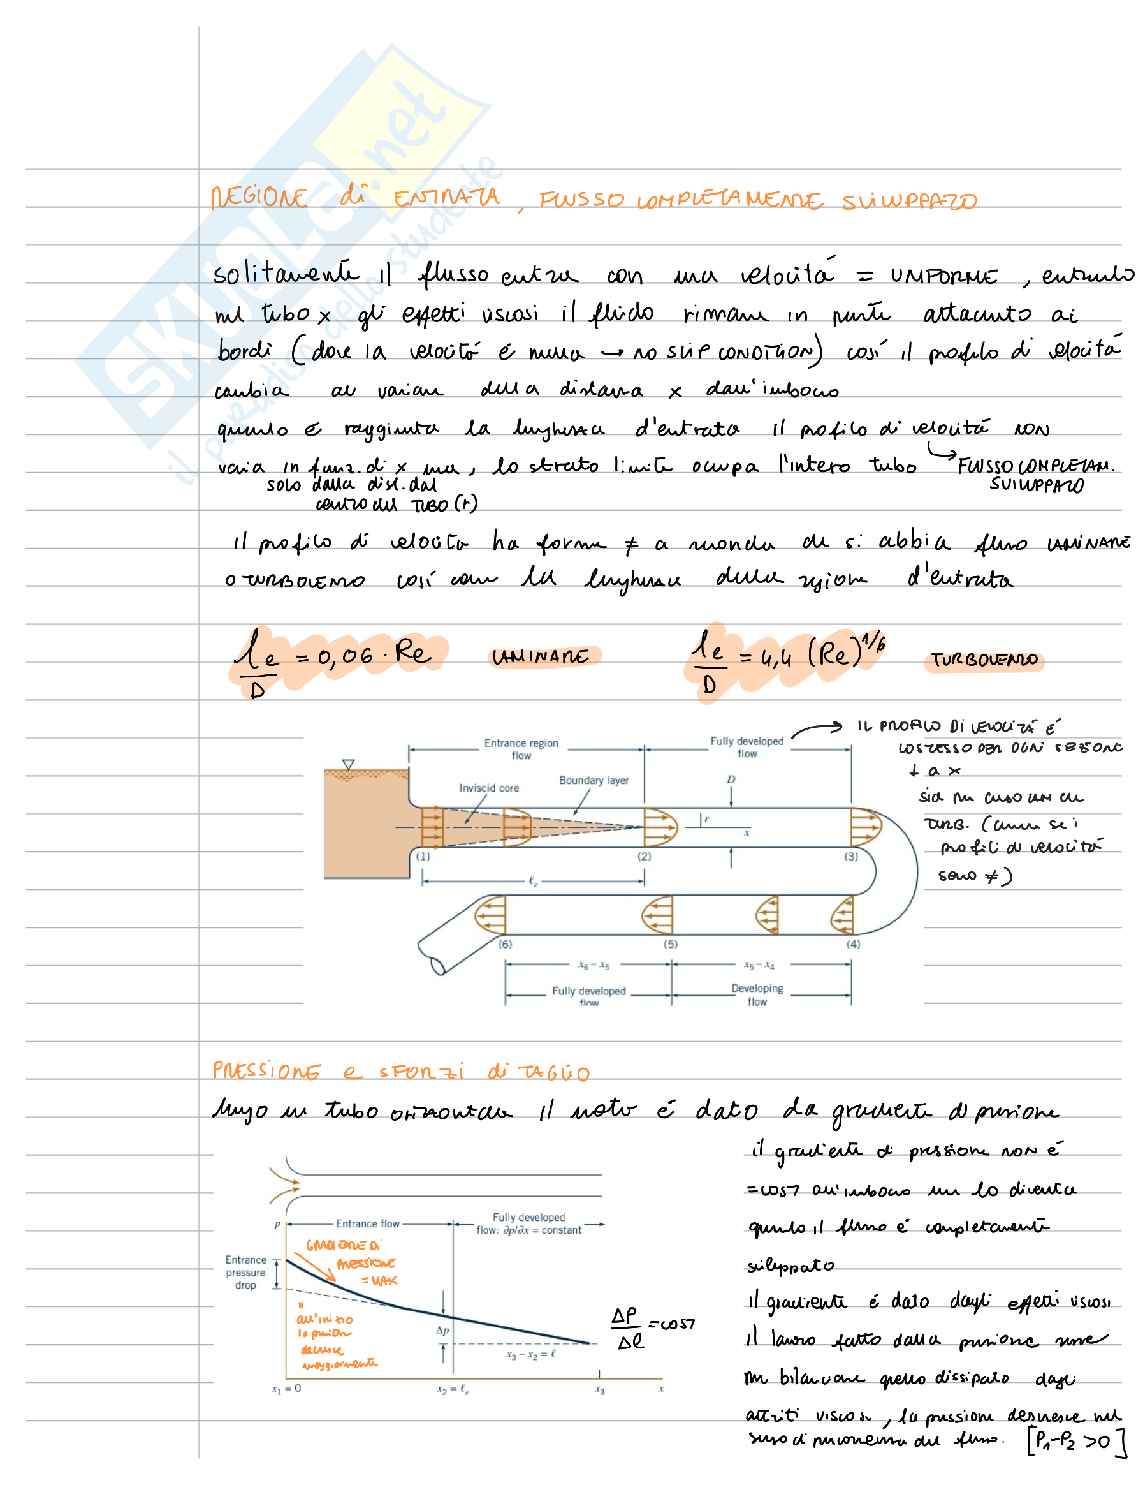 SKUOLA.net
il paradiso dello studente
REGIONE di ENTRATA, FLUSSO COMPLETAMENTE SVILUPPATO
solitamente il flusso entra con una velocità = UNIFORME, entrando
nel tubo x gli effetti viscosi il fluido rimane in parte attaccato ai
bordi (dove la velocità é nulla → NO SLIP CONDITION) così il profilo di velocità
cambia al variare della distanza x dall'imbocco
quando é raggiunta la lunghezza d'entrata il profilo di velocità NON
varia in funz. di x ma, lo strato limite occupa l'intero tubo → FLUSSO COMPLETAM.
SVILUPPATO
solo dalla dist. dal
centro del TUBO (r)
il profilo di velocità ha forma ≠ a seconda che si abbia flusso LAMINARE
O TURBOLENTO così come la lunghezza della regione d'entrata
le/D = 0,06 · Re LAMINARE
le/D = 4,4 (Re)^1/6 TURBOLENTO
→ IL PROFILO DI VELOCITÀ É
LO STESSO PER OGNI SEZIONE
⊥ a x
sia in caso LAM che
TURB. (anche se i
profili di velocità
sono ≠)
Entrance region
flow
Fully developed
flow
Inviscid core
Boundary layer
D
r
x
(1)
(2)
(3)
ℓe
(6)
(5)
(4)
x6 – x5
x5 – x4
Fully developed
flow
Developing
flow
PRESSIONE e SFORZI di TAGLIO
lungo un tubo orizzontale il moto é dato da gradiente di pressione
il gradiente di pressione NON É
=COST all'imbocco ma lo diventa
quando il flusso é completamente
sviluppato
il gradiente é dato dagli effetti viscosi
il lavoro fatto dalla pressione serve
per bilanciare quello dissipato dagli
attriti viscosi, la pressione decresce nel
senso di percorrenza del flusso. [P1-P2 >0]
p
Entrance flow
Fully developed
flow: ∂p/∂x = constant
GRADIENTE DI
PRESSIONE
= MAX
Entrance
pressure
drop
all'inizio
la pressione
decresce
maggiormente
Δp
x3 – x2 = ℓ
ΔP/Δl = COST
x1 = 0
x2 = ℓe
x3
x